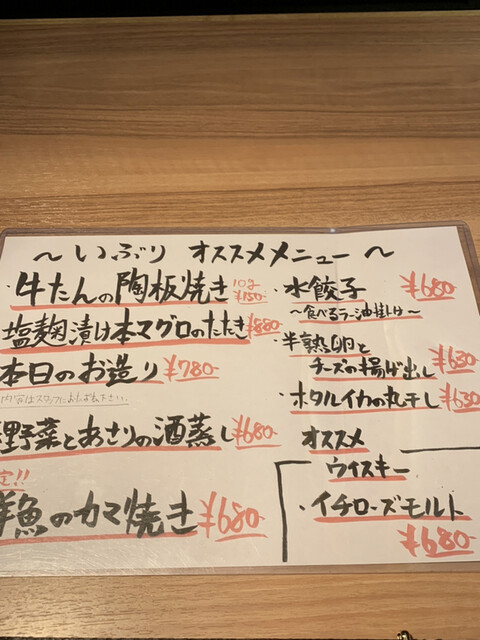 ～いぶり オススメメニュー～
・牛たんの陶板焼き 10g ¥150-
塩麹漬け本マグロのたたき ¥880-
本日のお造り ¥780-
内容はスタッフにおたずね下さい。
野菜とあさりの酒蒸し ¥680-
定!!
魚のカマ焼き ¥680-
・水餃子 ¥680-
～食べるラー油掛け～
・半熟卵と
チーズの揚げ出し ¥630-
・ホタルイカの丸干し ¥630
オススメ
ウイスキー
・イチローズモルト
¥680-